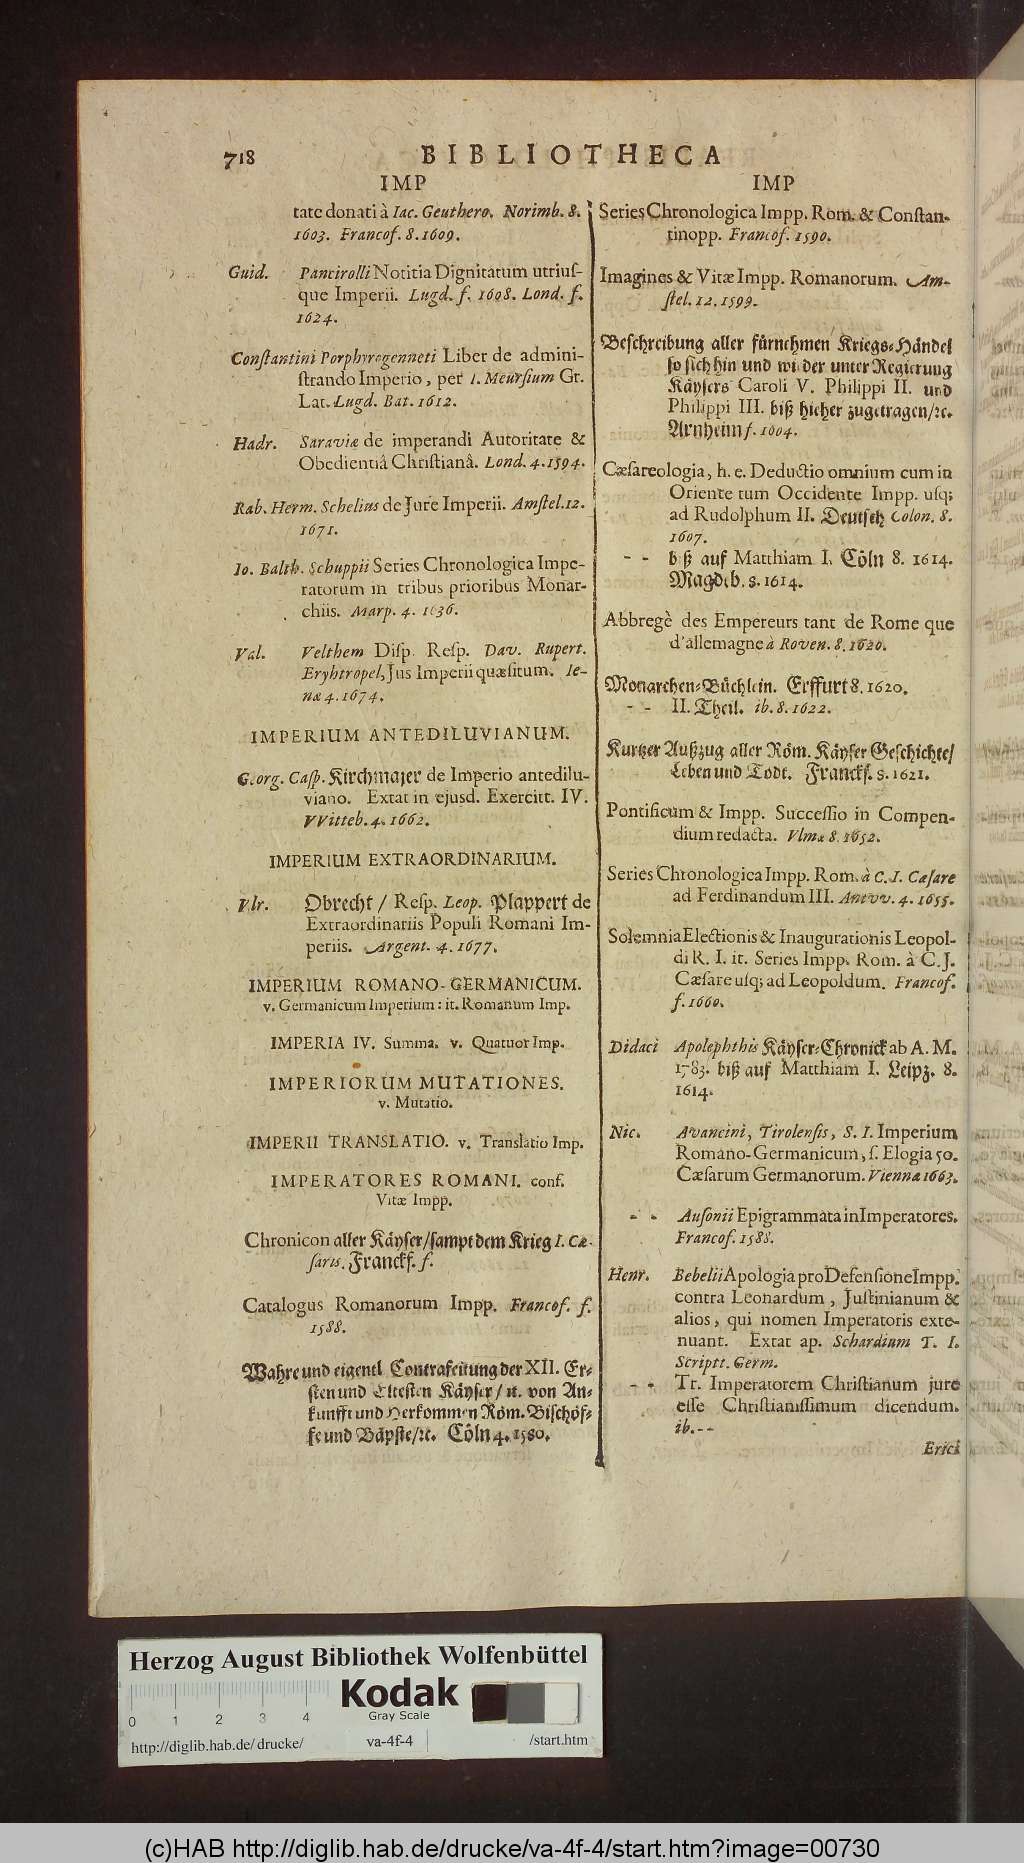 718
BIBLIOTHECA
IMP
tate donati à Iac. Geuthero. Norimb. 8.
1603. Francof. 8. 1609.
Guid. Pancirolli Notitia Dignitatum utriuſ-
que Imperii. Lugd. f. 1608. Lond. f.
1624.
Conſtantini Porphyrogenneti Liber de admini-
ſtrando Imperio, per I. Meurſium Gr.
Lat. Lugd. Bat. 1612.
Hadr. Saraviæ de imperandi Autoritate &
Obedientiâ Chriſtianâ. Lond. 4. 1594.
Rab. Herm. Schelius de Jure Imperii. Amſtel. 12.
1671.
Io. Balth. Schuppii Series Chronologica Impe-
ratorum in tribus prioribus Monar-
chiis. Marp. 4. 1636.
Val. Velthem Diſp. Reſp. Dav. Rupert.
Eryhtropel, Jus Imperii quæſitum. Ie-
næ 4. 1674.
IMPERIUM ANTEDILUVIANUM.
Georg. Caſp. Kirchmajer de Imperio antedilu-
viano. Extat in ejusd. Exercitt. IV.
VVitteb. 4. 1662.
IMPERIUM EXTRAORDINARIUM.
Vlr. Obrecht / Reſp. Leop. Plappert de
Extraordinariis Populi Romani Im-
periis. Argent. 4. 1677.
IMPERIUM ROMANO-GERMANICUM.
v. Germanicum Imperium: it. Romanum Imp.
IMPERIA IV. Summa. v. Quatuor Imp.
IMPERIORUM MUTATIONES.
v. Mutatio.
IMPERII TRANSLATIO. v. Translatio Imp.
IMPERATORES ROMANI. conf.
Vitæ Impp.
Chronicon aller Käyſer/ſampt dem Krieg I. Cæ-
ſaris. Franckf. f.
Catalogus Romanorum Impp. Francof. f.
1588.
Wahre und eigentl Contrafeitung der XII. Er-
ſten und Elteſten Käyſer / it. von An-
kunfft und Herkommen Röm. Biſchöf-
fe und Bäpſte/ꝛc. Cöln 4. 1580.
IMP
Series Chronologica Impp. Rom. & Conſtan-
tinopp. Francof. 1590.
Imagines & Vitæ Impp. Romanorum. Am-
ſtel. 12. 1599.
Beſchreibung aller fürnehmen Kriegs-Händel
ſo ſich hin und wider unter Regierung
Käyſers Caroli V. Philippi II. und
Philippi III. biß hieher zugetragen/ꝛc.
Arnheim f. 1604.
Cæſareologia, h. e. Deductio omnium cum in
Oriente tum Occidente Impp. uſq;
ad Rudolphum II. Deutſch Colon. 8.
1607.
- - biß auf Matthiam I. Cöln 8. 1614.
Magdeb. 8. 1614.
Abbregè des Empereurs tant de Rome que
d'allemagne à Roven. 8. 1620.
Monarchen-Büchlein. Erffurt 8. 1620.
- - II. Theil. ib. 8. 1622.
Kurtzer Außzug aller Röm. Käyſer Geſchichte/
Leben und Todt. Franckf. 8. 1621.
Pontificum & Impp. Succeſſio in Compen-
dium redacta. Vlmæ 8. 1652.
Series Chronologica Impp. Rom. à C. I. Cæſare
ad Ferdinandum III. Antvv. 4. 1655.
Solemnia Electionis & Inaugurationis Leopol-
di R. I. it. Series Impp. Rom. à C. J.
Cæſare uſq; ad Leopoldum. Francof.
f. 1660.
Didaci Apolephthis Käyſer-Chronick ab A. M.
1783. biß auf Matthiam I. Leipz. 8.
1614.
Nic. Avancini, Tirolenſis, S. I. Imperium
Romano-Germanicum, ſ. Elogia 50.
Cæſarum Germanorum. Viennæ 1663.
- - Auſonii Epigrammata in Imperatores.
Francof. 1588.
Henr. Bebelii Apologia pro Defenſione Impp.
contra Leonardum, Juſtinianum &
alios, qui nomen Imperatoris exte-
nuant. Extat ap. Schardium T. I.
Scriptt. Germ.
- - Tr. Imperatorem Chriſtianum jure
eſſe Chriſtianiſſimum dicendum.
ib. - -
Erici
Herzog August Bibliothek Wolfenbüttel
Kodak
Gray Scale
0 1 2 3 4
http://diglib.hab.de/drucke/ va-4f-4 /start.htm
(c)HAB http://diglib.hab.de/drucke/va-4f-4/start.htm?image=00730